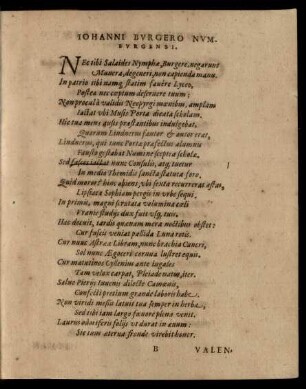 IOHANNI BVRGERO NVM-
BVRGENSI.
NEc tibi Salaides Nymphæ, Burgere, negarunt
Munera, degeneri non capienda manu.
In patrio tibi namq; statim favêre Lyceo,
Postea nec coptum deseruere tuum:
Non procul à validis Neopyrgi mœnibus, amplam
Iactat ubi Musis Porta dicata scholam.
Hîc tua mens quîs præstantibus indulgebat,
Quorum Lindnerus fautor & autor erat,
Lindnerus, qui tunc Portæ præfectus alumnis
Fausto gestabat Numine sceptra scholæ,
Sed fasces iactat nunc Consulis, atq; tuetur
In medio Themidis sancta statura foro,
Quid moror? hinc abiens, ubi festa recurreret æstas,
Lipsiacæ Sophiam pergis in urbe sequi,
In primis, magni scrutata volumina cœli
Vraniæ studijs dux fuit usq; tuis.
Hæc docuit, tardis quænam mora noctibus obstet:
Cur fuscis veniat pallida Luna rotis.
Cur nunc Astreæ Libram, nunc brachia Cancri,
Sol nunc Ægoceri cornua lustret equis.
Cur matutinos Vpsenim ante iugales
Tam velox carpat, Pleiade natus, iter.
Salve Pierijs iuvenis dilecte Camœnis,
Confecti pretium grande laboris habe.
Non viridi messis latuit tua semper in herba,
Sed tibi iam largo favore plena venit.
Laurus odoriferis folijs ut durat in ævum:
Sic tam attrita fronde virebit honor.
B
VALEN-